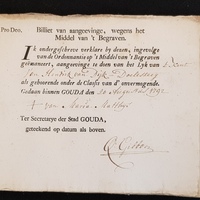 Pro Deo. Billiet van aangeevinge, wegens het
Middel van 't Begraven.
Ik ondergeschreve verklare by deezen, ingevolge
van de Ordonnantie op 't Middel van 't Begraven
geëmaneert, aangeevinge te doen van het Lyk van
van Hendrik van Dyk
als gehoorende onder de Classis van d' onvermogende.
Gedaan binnen GOUDA den 30 Augustus 1792
van Maria
Ter Secretarye der Stad GOUDA,
geteekend op datum als boven.